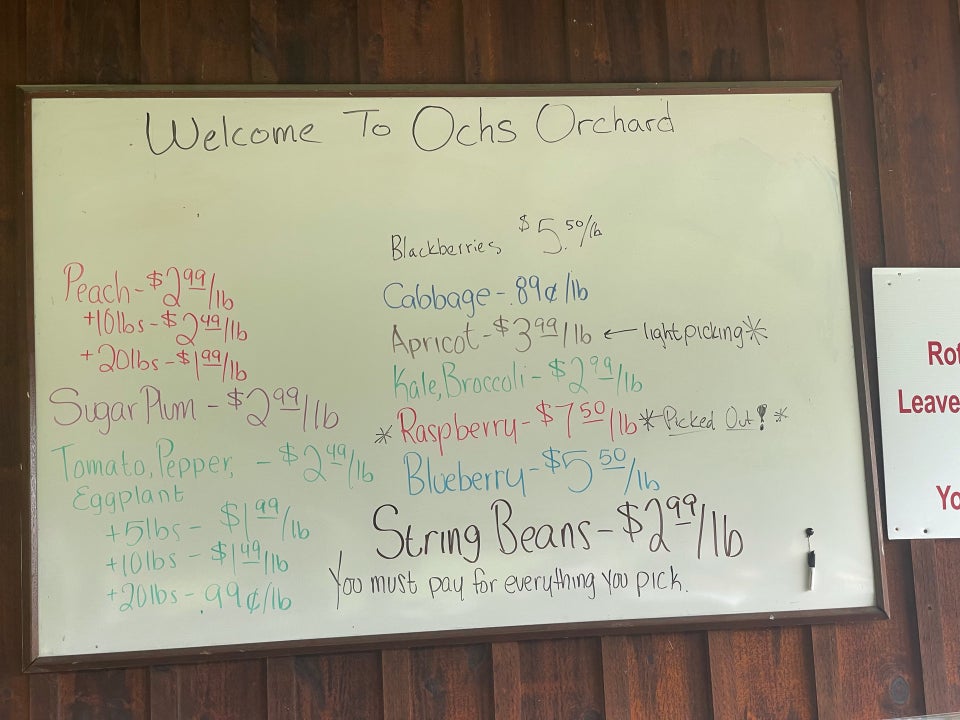 Welcome To Ochs Orchard
Peach-$2.99/lb
+10lbs-$2.49/lb
+20lbs-$1.99/lb
Sugar Plum-$2.99/lb
Tomato, Pepper, -$2.49/lb
Eggplant
+5lbs- $1.99/lb
+10lbs-$1.49/lb
+20lbs-99¢/lb
Blackberries $5.50/lb
Cabbage-.89¢/lb
Apricot-$3.99/lb ← light picking*
Kale, Broccoli-$2.99/lb
*Raspberry-$7.50/lb* Picked Out! *
Blueberry-$5.50/lb
String Beans-$2.99/lb
You must pay for everything you pick.
Leave